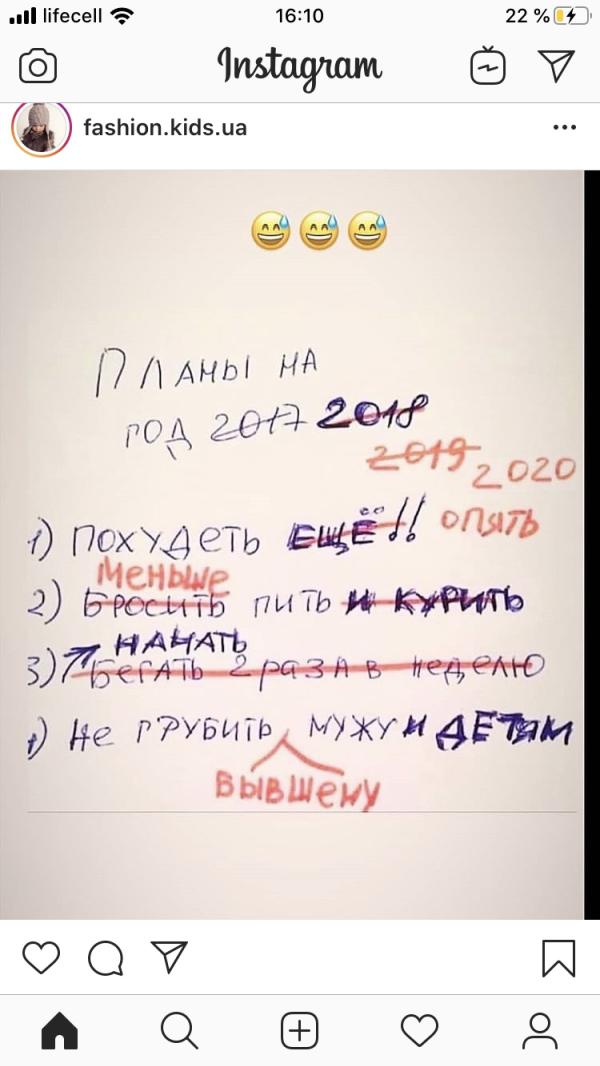 lifecell 16:10 22 %
Instagram
fashion.kids.ua
😅😅😅
Планы на
год 2017 2018
2019 2020
1) Похудеть ЕЩЁ!! опять
меньше
2) Бросить пить и курить
начать
3) Бегать 2 раза в неделю
1) Не грубить мужу и детям
бывшему